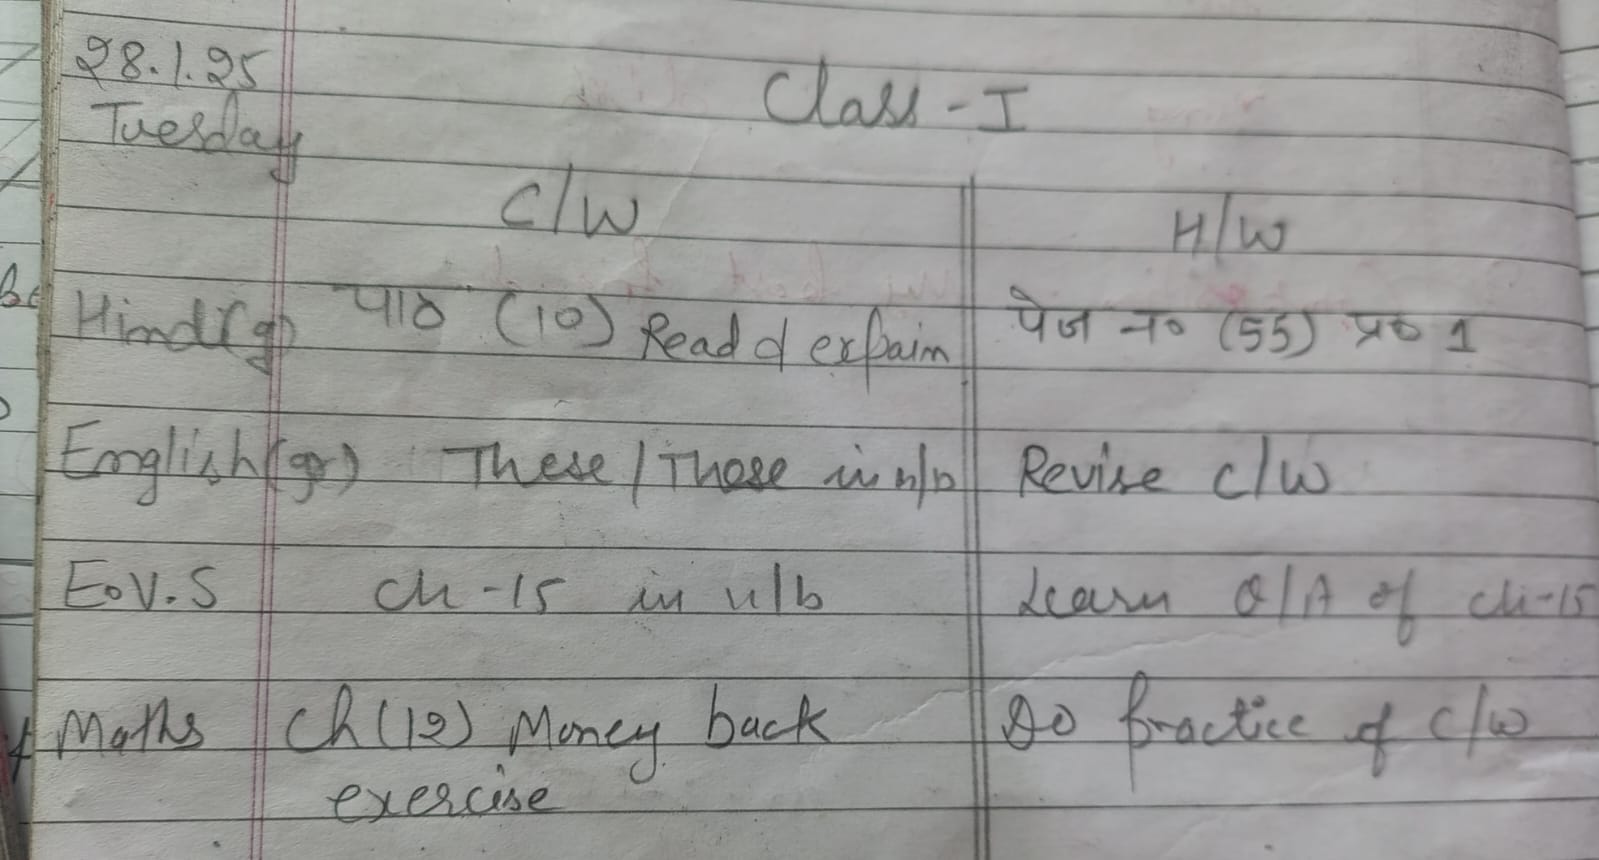 28.1.25
Tuesday
Class - I
C/W
H/W
Hindi(g) पाठ (10) Read d expain पेज न० (55) प्र० 1
English(gr) These / Those in n/b Revise c/w
E.V.S ch -15 in n/b Learn Q/A of ch-15
Maths Ch (12) Money back Do practice of c/w
exercise